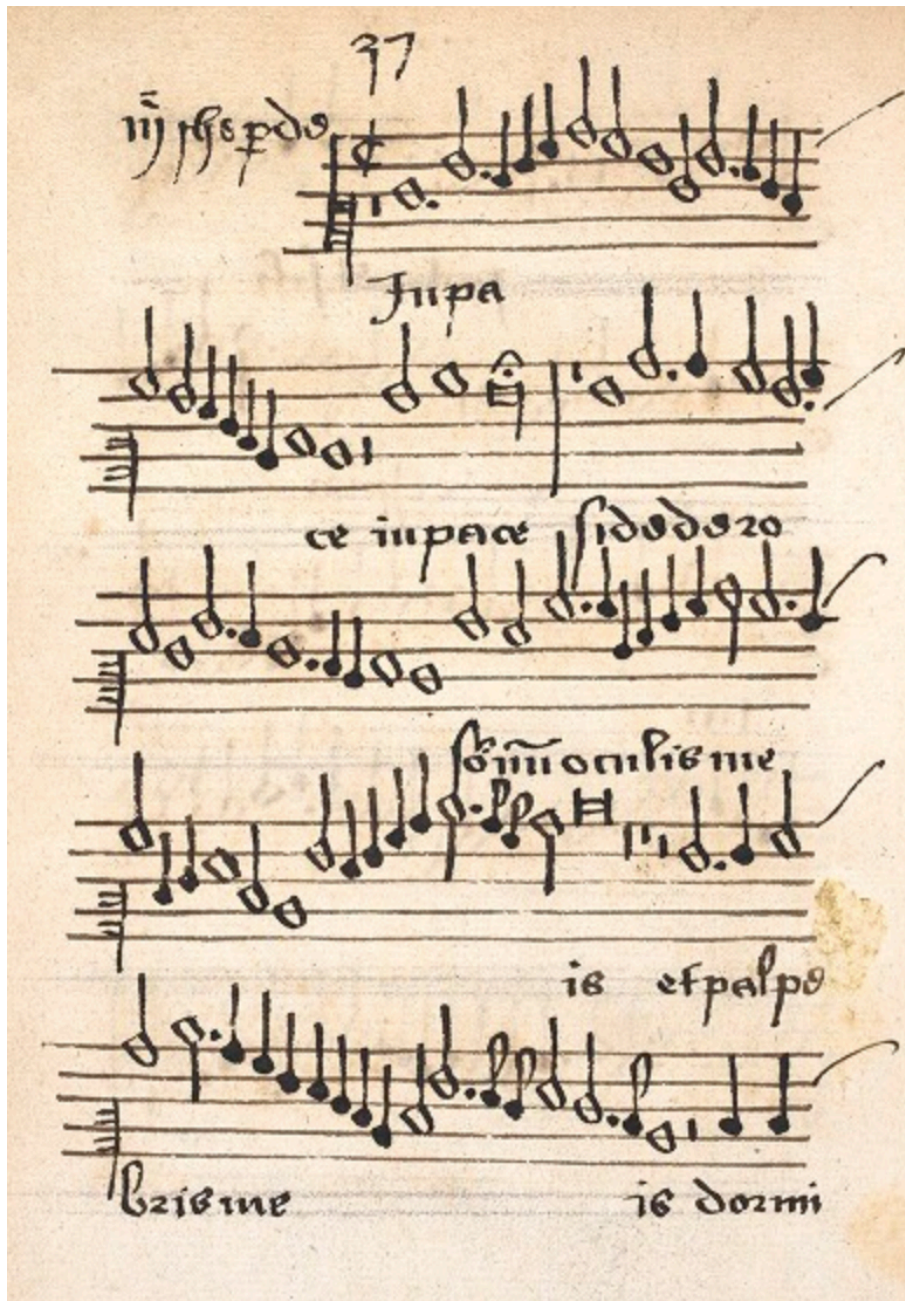 37
Jn pa
ce in pace si dedero
somnū oculis me
is et palpe
bris me is dormi